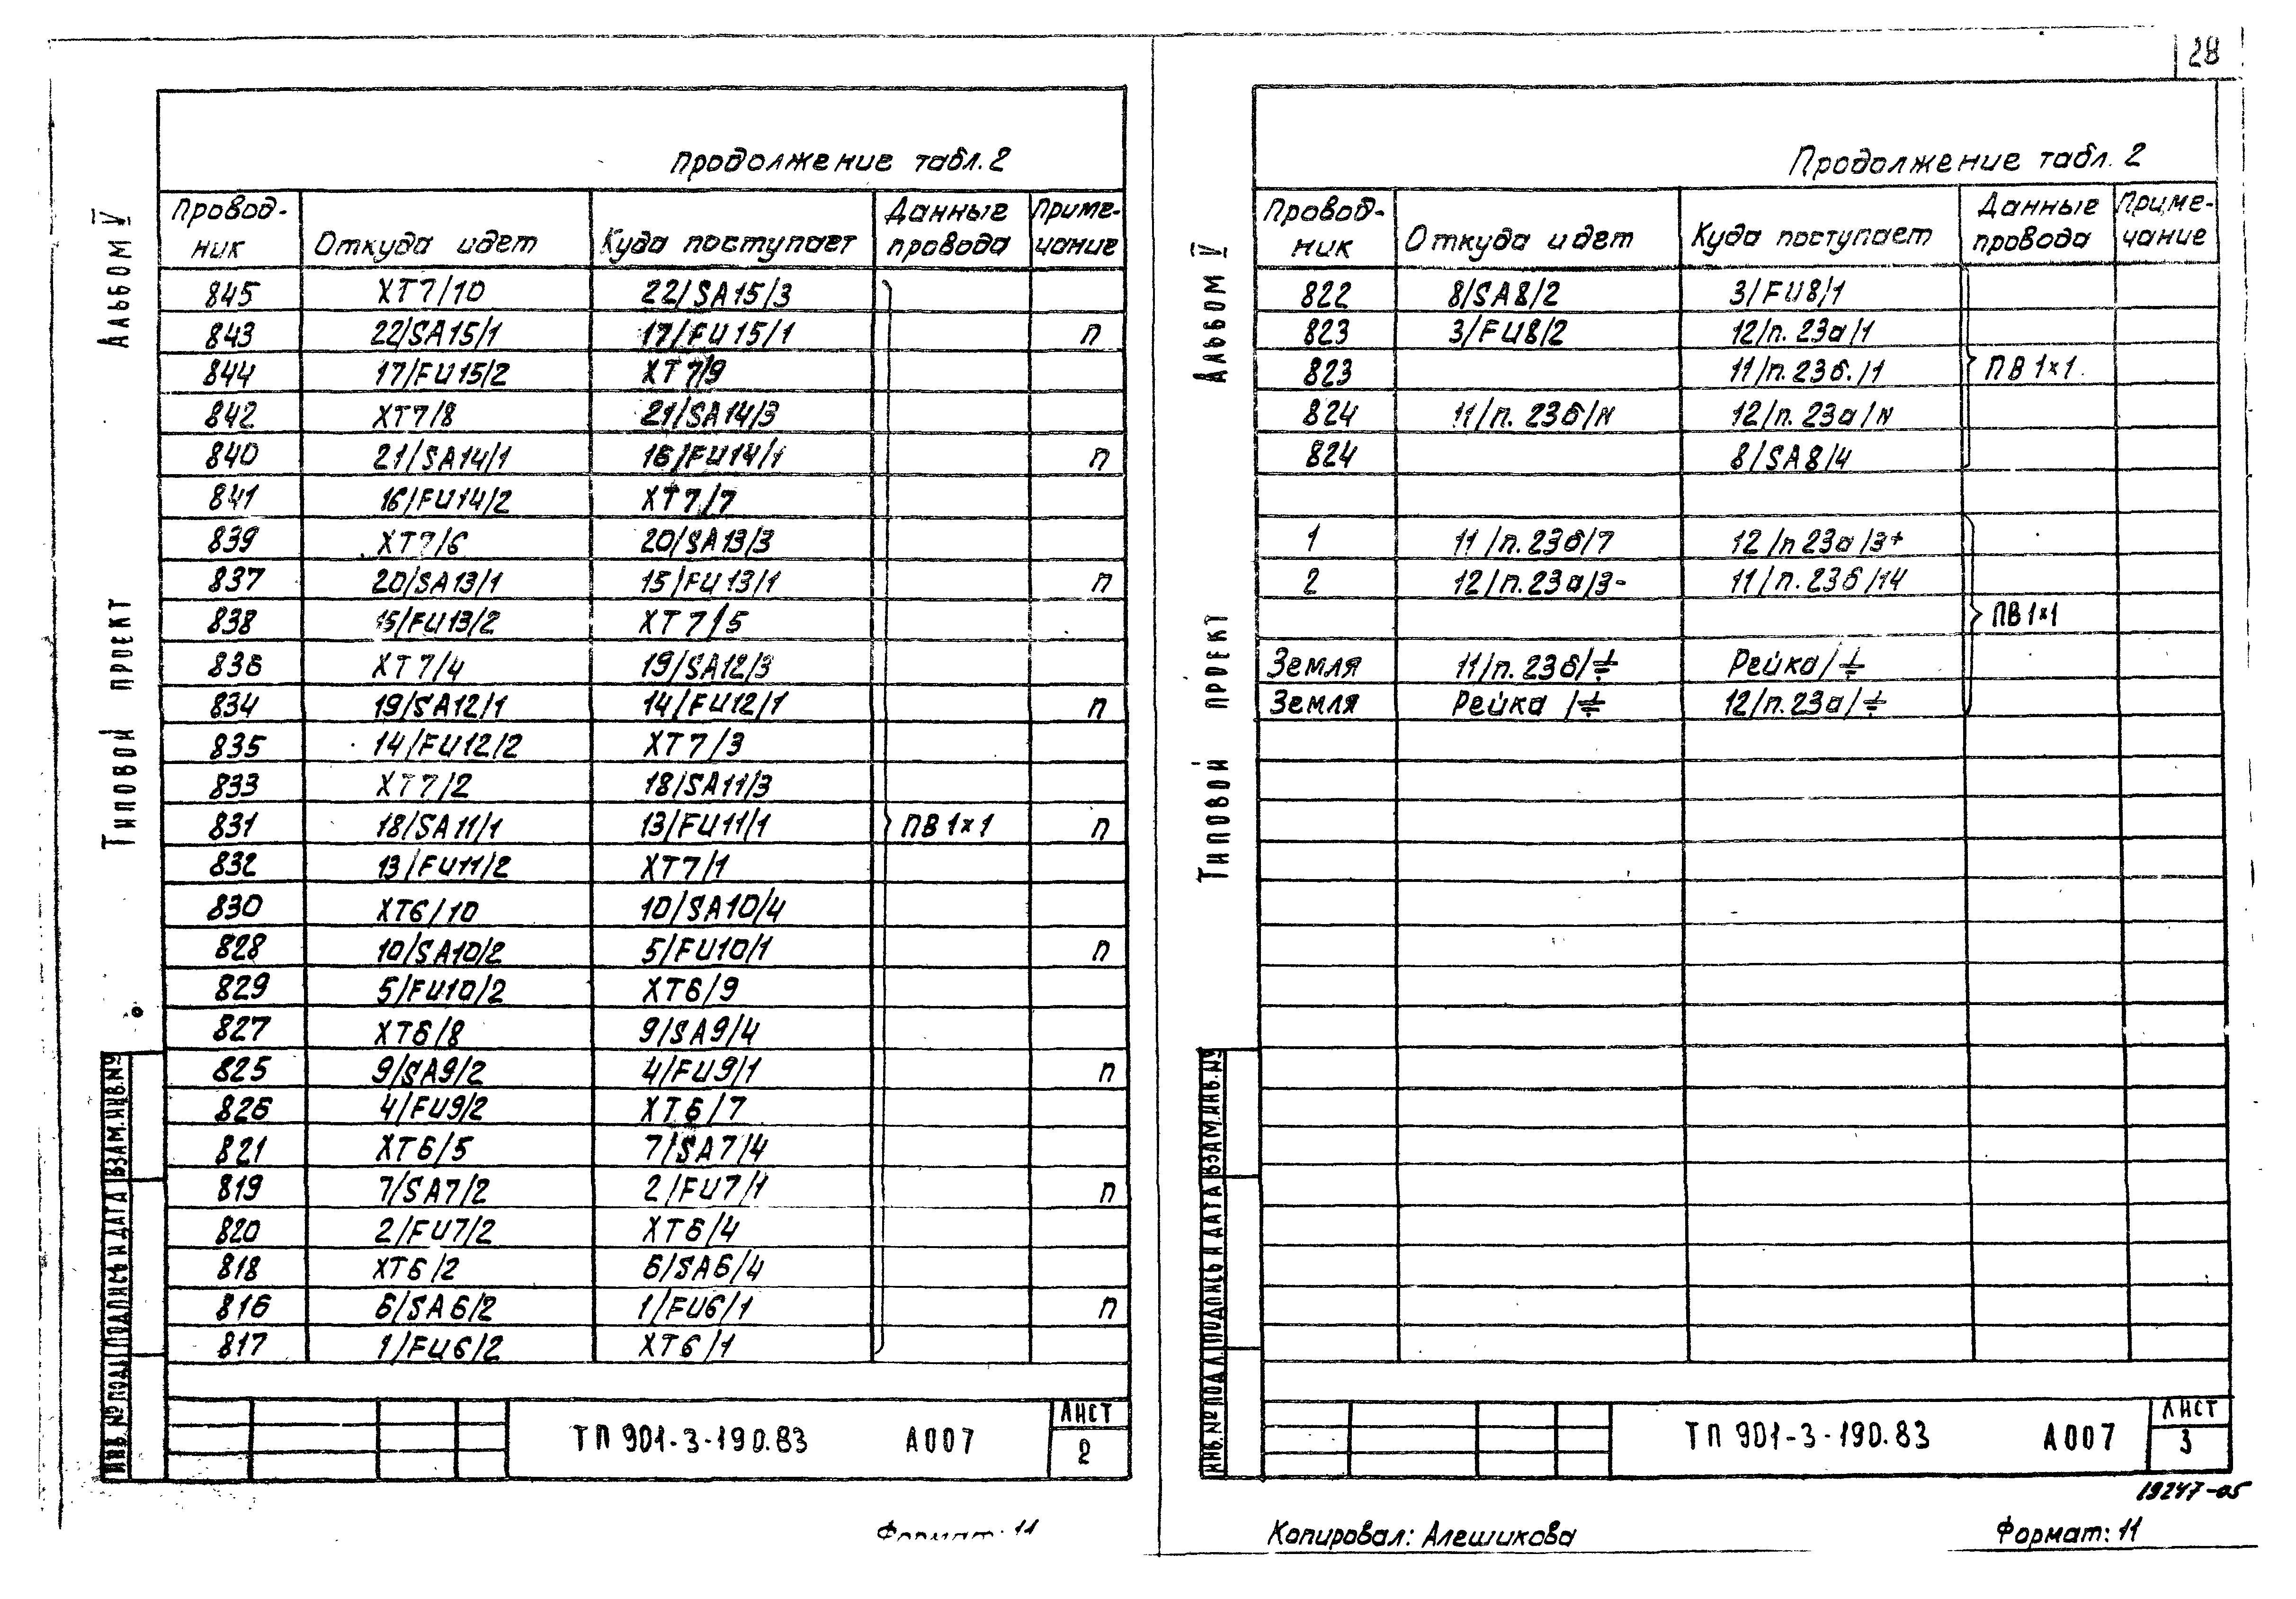 28
Альбом V
Типовой проект
Продолжение табл. 2
Провод-
ник
Откуда идет
Куда поступает
Данные
провода
Приме-
чание
845 XT7/10 22/SA15/3
843 22/SA15/1 17/FU15/1 п
844 17/FU15/2 XT7/9
842 XT7/8 21/SA14/3
840 21/SA14/1 16/FU14/1 п
841 16/FU14/2 XT7/7
839 XT7/6 20/SA13/3
837 20/SA13/1 15/FU13/1 п
838 15/FU13/2 XT7/5
836 XT7/4 19/SA12/3
834 19/SA12/1 14/FU12/1 п
835 14/FU12/2 XT7/3
833 XT7/2 18/SA11/3
831 18/SA11/1 13/FU11/1 ПВ 1×1 п
832 13/FU11/2 XT7/1
830 XT6/10 10/SA10/4
828 10/SA10/2 5/FU10/1 п
829 5/FU10/2 XT6/9
827 XT6/8 9/SA9/4
825 9/SA9/2 4/FU9/1 п
826 4/FU9/2 XT6/7
821 XT6/5 7/SA7/4
819 7/SA7/2 2/FU7/1 п
820 2/FU7/2 XT6/4
818 XT6/2 6/SA6/4
816 6/SA6/2 1/FU6/1 п
817 1/FU6/2 XT6/1
Инв. № подл. Подпись и дата Взам. инв. №
ТП 901-3-190.83 А007
Лист
2
Формат: 11
Альбом V
Типовой проект
Продолжение табл. 2
Провод-
ник
Откуда идет
Куда поступает
Данные
провода
Приме-
чание
822 8/SA8/2 3/FU8/1
823 3/FU8/2 12/п. 23а/1
823 11/п. 23б./1 ПВ 1×1.
824 11/п. 23б/N 12/п. 23а/N
824 8/SA8/4
1 11/п. 23б/7 12/п 23а/3+
2 12/п. 23а/3- 11/п. 23б/14
ПВ 1×1
Земля 11/п. 23б/⏚ Рейка/⏚
Земля Рейка/⏚ 12/п. 23а/⏚
Инв. № подл. Подпись и дата Взам. инв. №
ТП 901-3-190.83 А007
Лист
3
19247-05
Копировал: Алешикова
Формат: 11